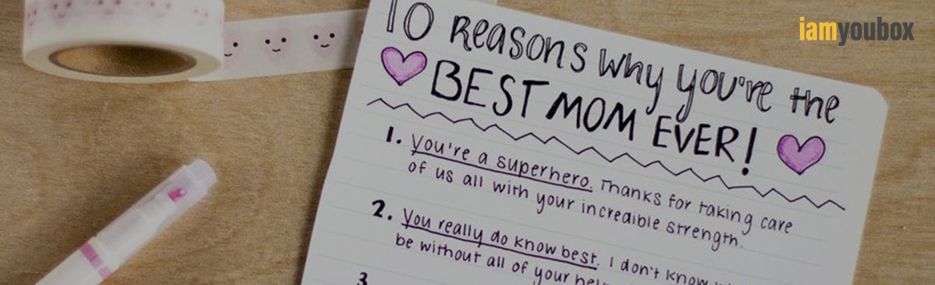 iamyoubox
10 Reasons why you're the
BEST MOM EVER!
1. You're a superhero. Thanks for taking care
of us all with your incredible strength.
2. You really do know best. I don't know
be without all of your
3.